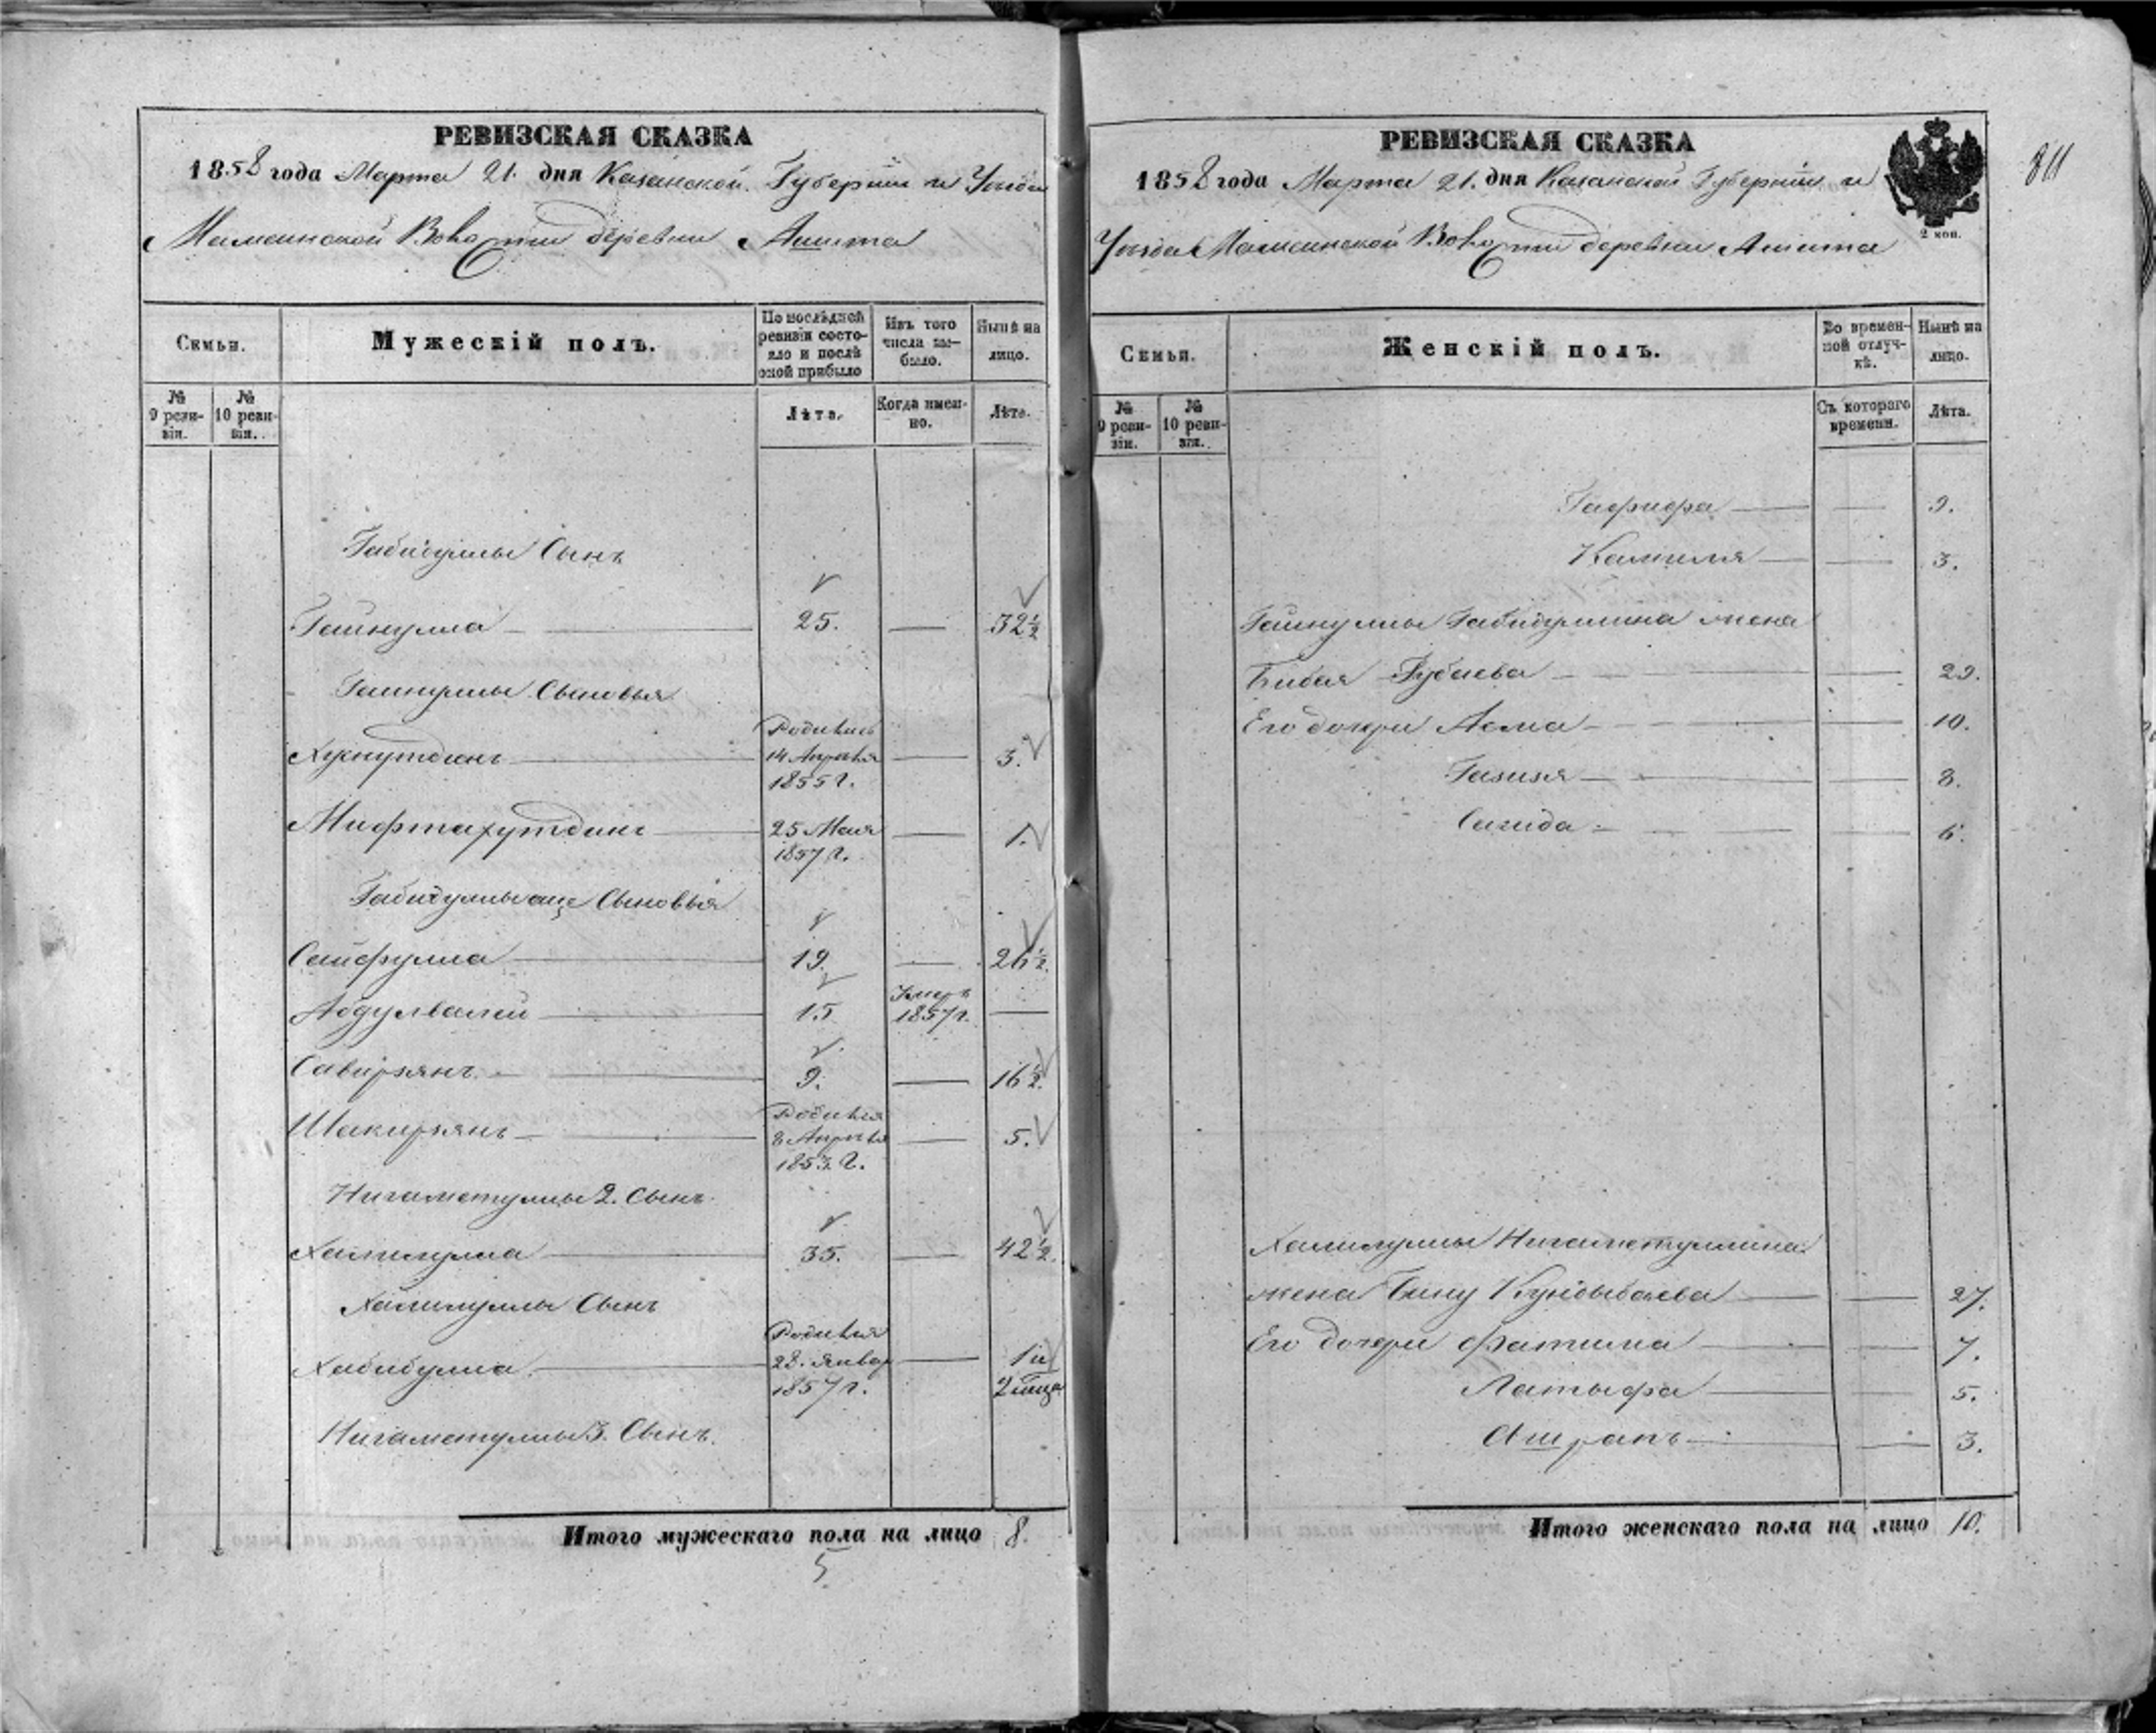 РЕВИЗСКАЯ СКАЗКА
1858 года Марта 21. дня Казанской Губернии и Уезда
Мамсинской Волости деревни Ашита
Семьи.
Мужескій полъ.
По послѣдней ревизіи состояло и послѣ оной прибыло
Изъ того числа выбыло.
Нынѣ на лицо.
№ 9 ревизіи.
№ 10 ревизіи.
Лѣта.
Когда именно.
Лѣта.
Габидуллы Сынъ
Гайнулла 25. 32 1/2
Гайнуллы Сыновья
Хуснутдинъ Родились 14 Апрѣля 1855 г. 3.
Мифтахутдинъ 25 Мая 1857 г. 1.
Габидуллы еще Сыновья
Сайфулла 19. 26 1/2.
Абдулвалей 15 Умеръ 1857 г.
Савирзянъ 9. 16 1/2.
Шакирзянъ Родился 8 Апрѣля 1853 г. 5.
Нигаметуллы 2. Сынъ
Халиулла 35. 42 1/2.
Сынъ
Хабибулла Родился 28. Январ 1857 г. 1 и 2 мца
Нигаметуллы 3. Сынъ.
Итого мужескаго пола на лицо 8.
5
РЕВИЗСКАЯ СКАЗКА
1858 года Марта 21. дня Казанской Губерніи и
Уезда Мамсинской Волости деревни Ашита
2 коп.
811
Семьи.
Женскій полъ.
Во временной отлучкѣ.
Нынѣ на лицо.
№ 9 ревизіи.
№ 10 ревизіи.
Съ котораго времени.
Лѣта.
Гафифа 9.
Камиля 3.
Гайнуллы Габидуллина жена
Бибая Губаева 29.
Его дочери Асма 10.
Газизя 8.
Сагида 6.
Нигаметуллина
жена Бану Кундыбаева 27.
Его дочери Фатима 7.
Латыфа 5.
Ашрапъ 3.
Итого женскаго пола на лицо 10.